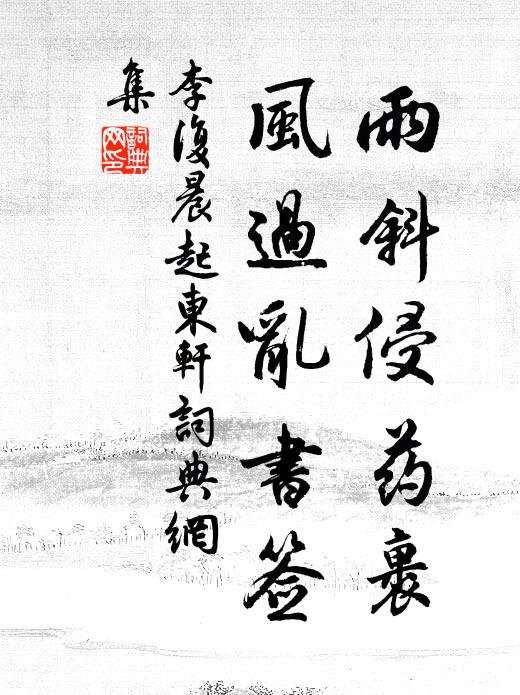 雨斜侵药裹
風過亂書签
李復晨起東軒詞典網
集
詞典網印